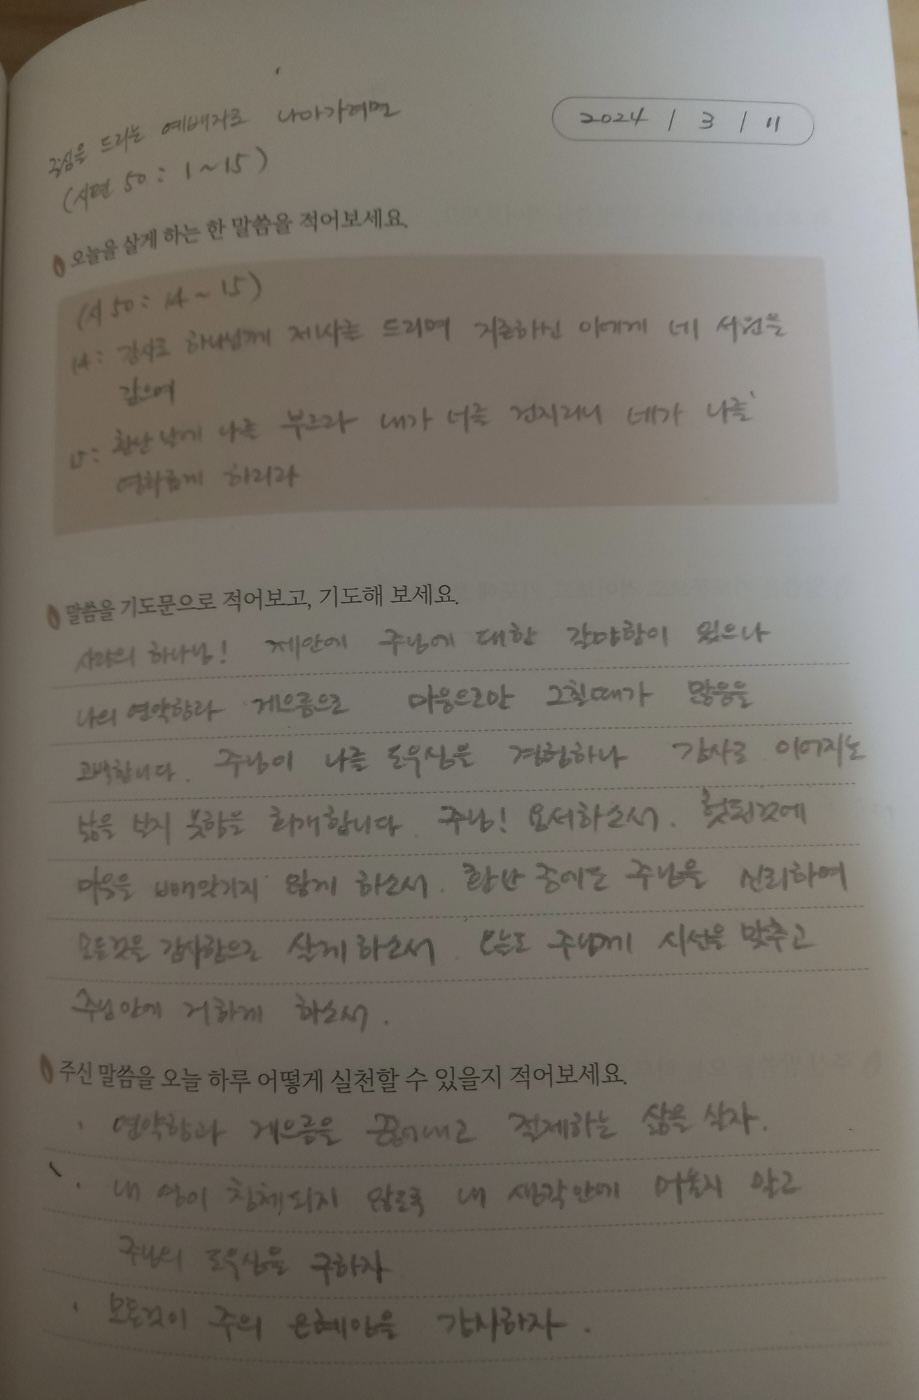 중심을 드리는 예배자로 나아가려면
2024 / 3 / 11
(시편 50 : 1 ~ 15)
오늘을 살게 하는 한 말씀을 적어보세요.
(시 50 : 14 ~ 15)
14 : 감사로 하나님께 제사를 드리며 지존하신 이에게 네 서원을
갚으며
15 : 환난 날에 나를 부르라 내가 너를 건지리니 네가 나를
영화롭게 하리라
말씀을 기도문으로 적어보고, 기도해 보세요.
사랑의 하나님! 제안에 주님에 대한 갈망함이 있으나
나의 연약함과 게으름으로 마음으로만 그칠때가 많음을
고백합니다. 주님이 나를 도우심을 경험하나 감사로 이어지는
삶을 살지 못함을 회개합니다. 주님! 용서하소서. 헛된것에
마음을 빼앗기지 않게 하소서. 환난 중에도 주님을 신뢰하며
모든것을 감사함으로 살게 하소서. 오늘도 주님께 시선을 맞추고
주님안에 거하게 하소서.
주신 말씀을 오늘 하루 어떻게 실천할 수 있을지 적어보세요.
· 연약함과 게으름을 끊어내고 절제하는 삶을 살자.
· 내 영이 침체되지 않도록 내 생각안에 머물지 않고
주님의 도우심을 구하자
· 모든것이 주의 은혜임을 감사하자.